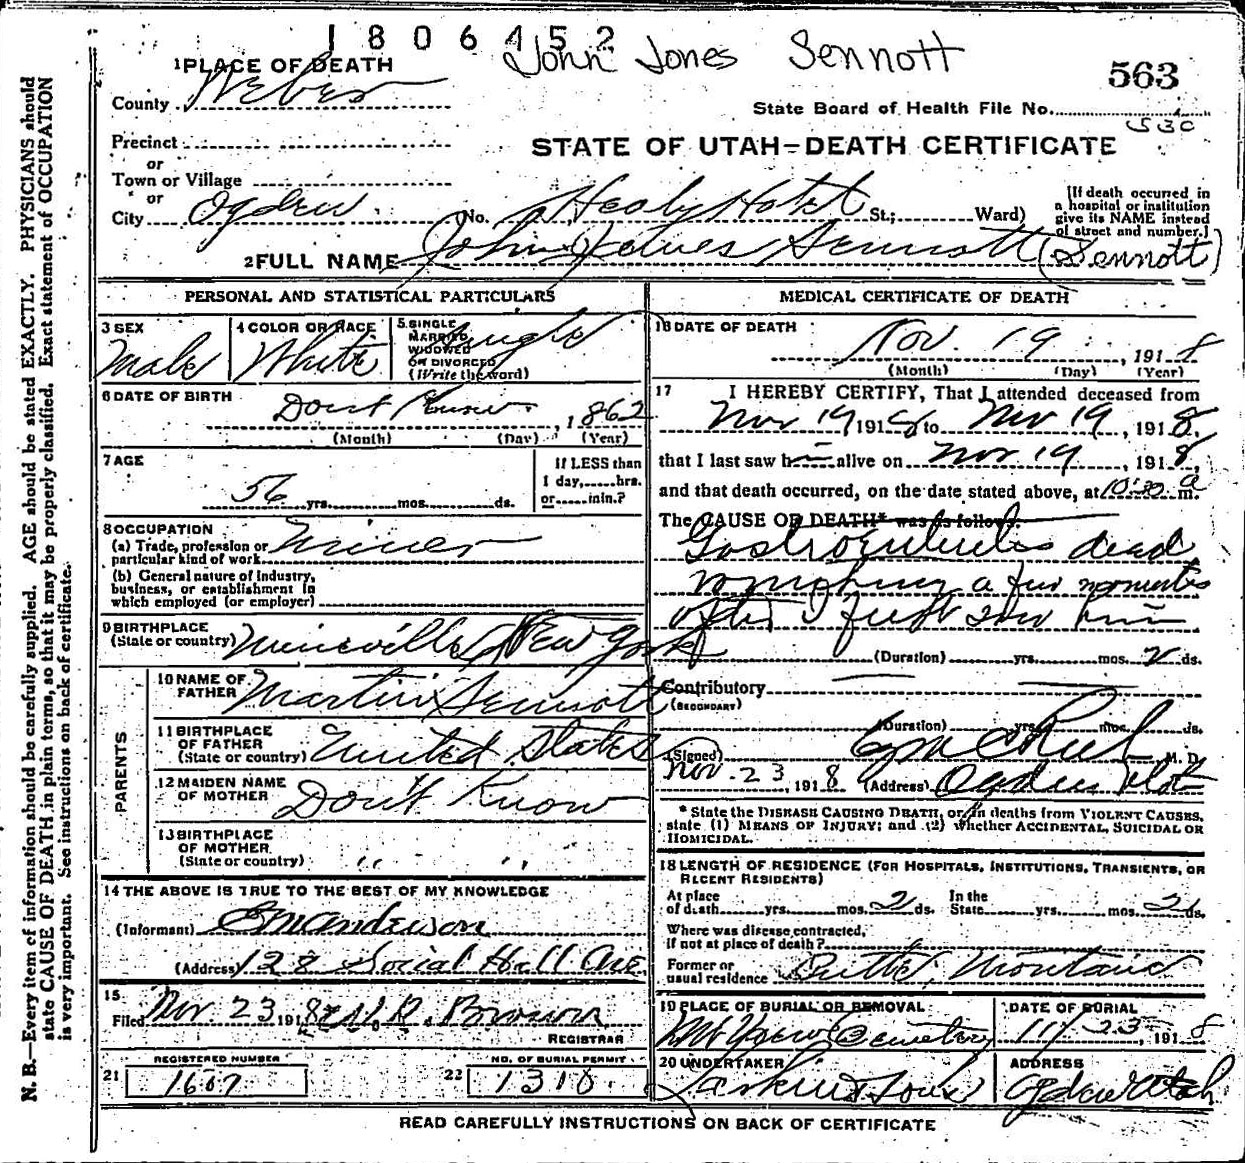 1806452
John Jones Sennott
563
1 PLACE OF DEATH
County Weber
State Board of Health File No.
530
Precinct
or
STATE OF UTAH—DEATH CERTIFICATE
Town or Village
or
City Ogden (No. Healy Hotel St.; Ward)
[If death occurred in a hospital or institution give its NAME instead of street and number.]
2 FULL NAME John Sennott (Sennott)
PERSONAL AND STATISTICAL PARTICULARS
3 SEX Male
4 COLOR OR RACE White
5 SINGLE MARRIED WIDOWED OR DIVORCED (Write the word) Single
6 DATE OF BIRTH Dont Know, 1862
(Month) (Day) (Year)
7 AGE 56 yrs. mos. ds.
If LESS than 1 day, hrs. or min.?
8 OCCUPATION
(a) Trade, profession or particular kind of work Miner
(b) General nature of Industry, business, or establishment in which employed (or employer)
9 BIRTHPLACE (State or country) Mineville New York
PARENTS
10 NAME OF FATHER Martin Sennott
11 BIRTHPLACE OF FATHER (State or country) United States
12 MAIDEN NAME OF MOTHER Don't Know
13 BIRTHPLACE OF MOTHER (State or country) " "
14 THE ABOVE IS TRUE TO THE BEST OF MY KNOWLEDGE
(Informant) Anderson
(Address) 128 Social Hall Ave
15
Filed Nov. 23 1918 Brown
REGISTRAR
REGISTERED NUMBER
21 1607
NO. OF BURIAL PERMIT
22 1310
MEDICAL CERTIFICATE OF DEATH
16 DATE OF DEATH
Nov. 19, 1918
(Month) (Day) (Year)
17 I HEREBY CERTIFY, That I attended deceased from
Nov 19 1918 to Nov 19, 1918,
that I last saw him alive on Nov 19, 1918,
and that death occurred, on the date stated above, at 10:30 a m.
The CAUSE OF DEATH* was as follows:
Gastroenteritis dead
a few moments
after I first saw him
(Duration) yrs. mos. 2 ds.
Contributory
(SECONDARY)
(Duration) yrs. mos. ds.
(Signed) M. D.
Nov. 23, 1918 (Address) Ogden Utah
* State the DISEASE CAUSING DEATH, or, in deaths from VIOLENT CAUSES, state (1) MEANS OF INJURY; and (2) whether ACCIDENTAL, SUICIDAL OR HOMICIDAL.
18 LENGTH OF RESIDENCE (FOR HOSPITALS, INSTITUTIONS, TRANSIENTS, OR RECENT RESIDENTS)
At place of death yrs. mos. 2 ds. In the State yrs. mos. 2 ds.
Where was disease contracted, if not at place of death?
Former or usual residence Butte, Montana
19 PLACE OF BURIAL OR REMOVAL
Cemetery
DATE OF BURIAL
11/23, 1918
20 UNDERTAKER
Larkin & Sons
ADDRESS
Ogden Utah
READ CAREFULLY INSTRUCTIONS ON BACK OF CERTIFICATE
N. B.—Every item of information should be carefully supplied. AGE should be stated EXACTLY. PHYSICIANS should
state CAUSE OF DEATH in plain terms, so that it may be properly classified. Exact statement of OCCUPATION
is very important. See instructions on back of certificate.